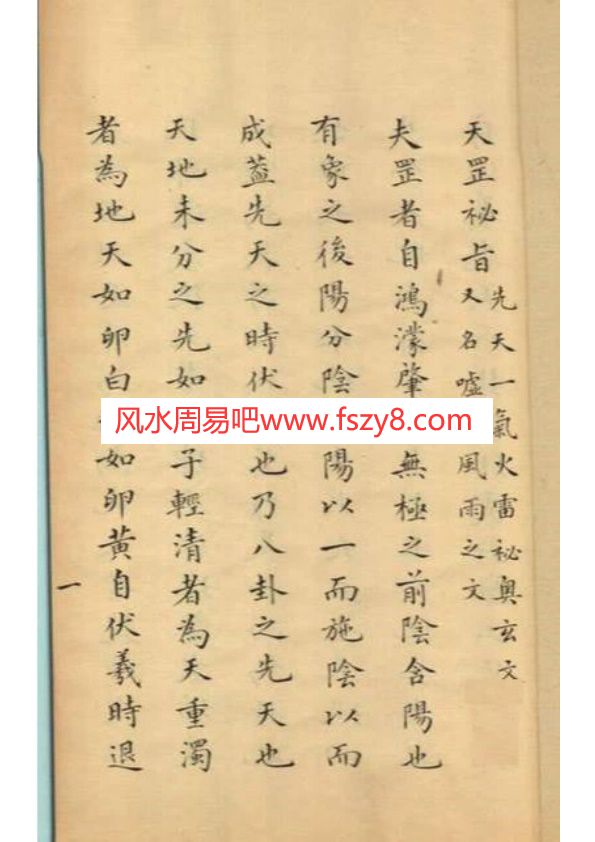 天罡祕旨
先天一氣火雷祕奧玄文
又名噓風雨之文
夫罡者自鴻濛肇無極之前陰含陽也
有象之後陽分陰陽以一而施陰以而
成蓋先天之時伏也乃八卦之先天也
天地未分之先如子輕清者為天重濁
者為地天如卵白如卵黃自伏羲時退
一
风水周易吧www.fszy8.com